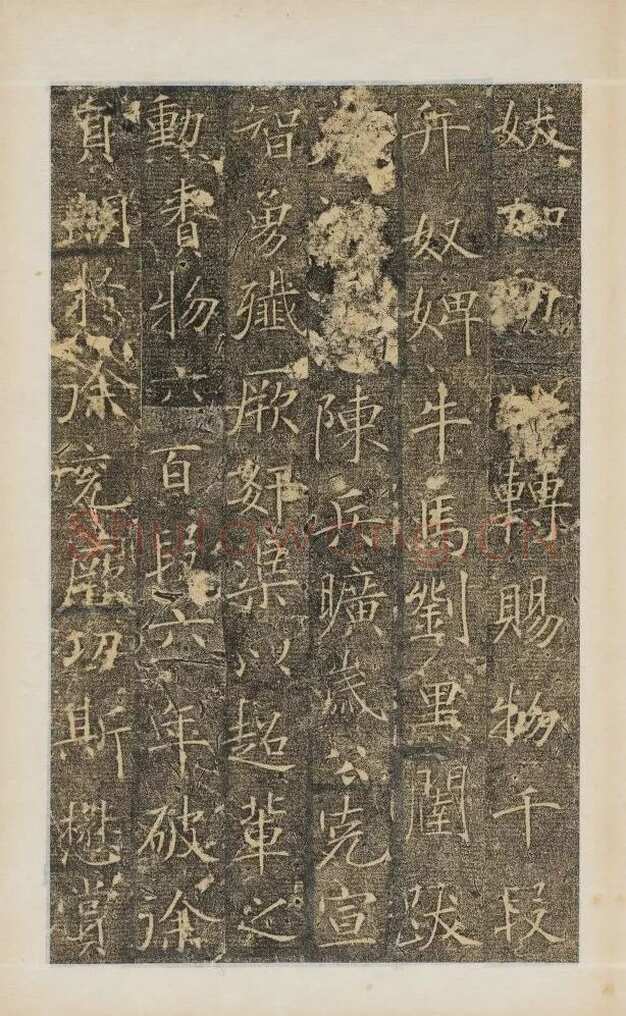 轉賜物千段
并奴婢牛馬劉黑闥跋
陳兵曠歲公克宣
智勇殲厥渠以超輩之
勳賚物六百段六年破徐
員朗於徐兗厥功斯懋賞